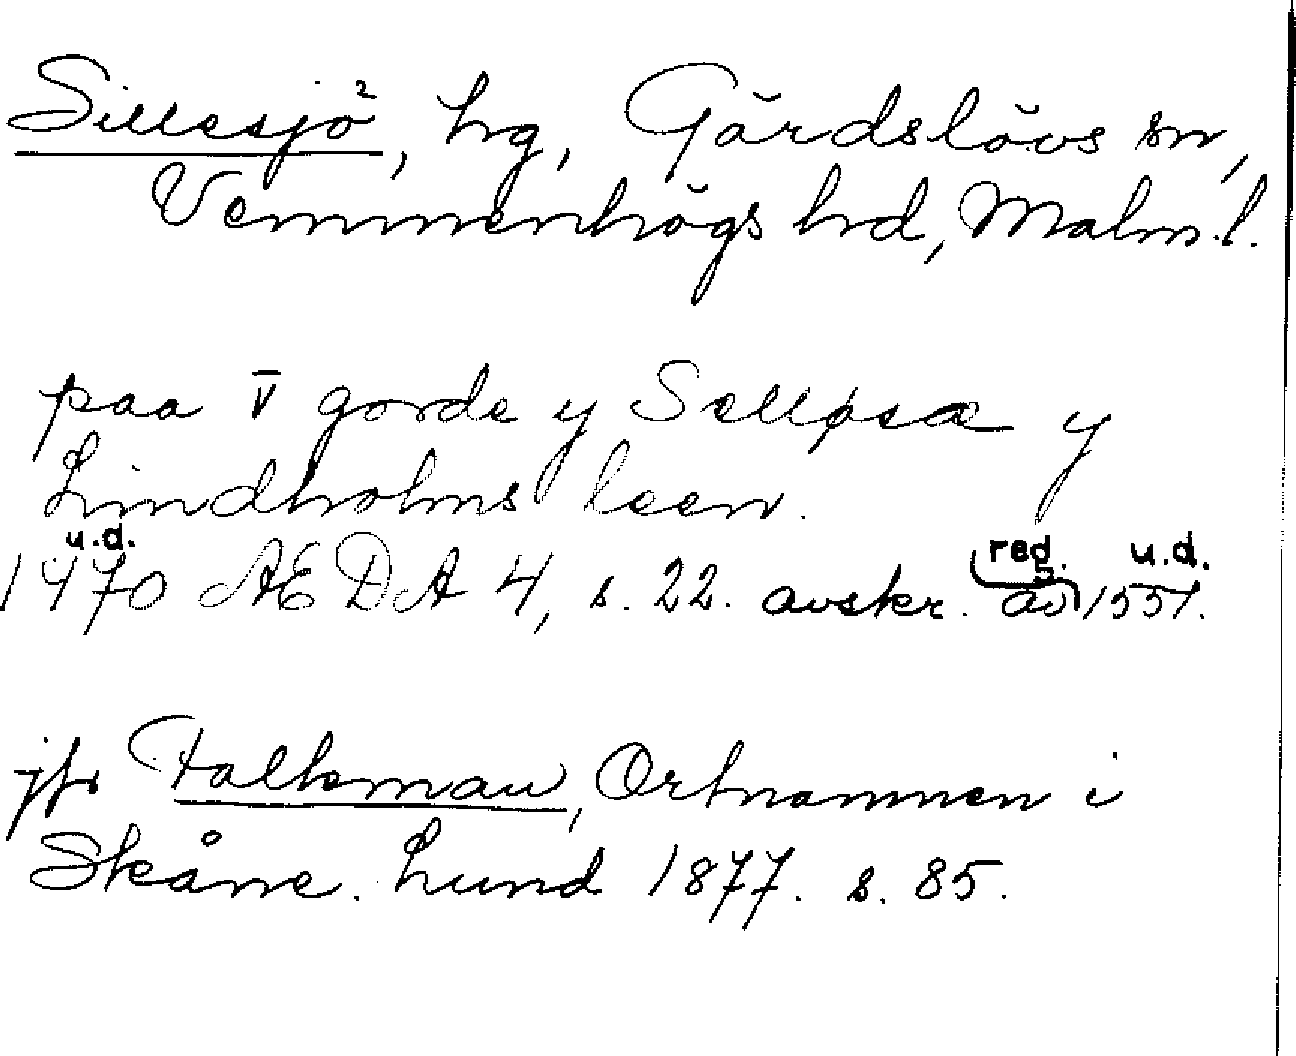 Sillesjö², hg, Gärdslövs sn,
Vemmenhögs hd, Malm.l.
paa V gorde ySelløsæ y
Lindholms leen.
u.d. reg. u.d.
1470 ÆDA 4, s. 22. avskr. av 1551.
jfr Falkman, Ortnamnen i
Skåne. Lund 1877. s. 85.